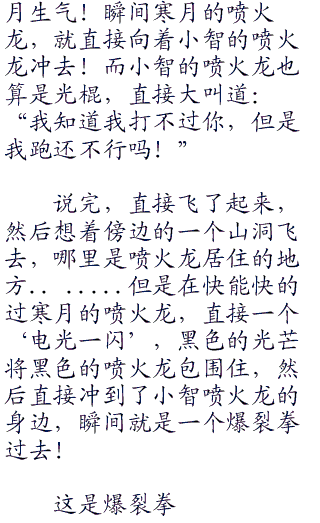 月生气！瞬间寒月的喷火
龙，就直接向着小智的喷火
龙冲去！而小智的喷火龙也
算是光棍，直接大叫道：
“我知道我打不过你，但是
我跑还不行吗！”
说完，直接飞了起来，
然后想着傍边的一个山洞飞
去，哪里是喷火龙居住的地
方.. .....但是在快能快的
过寒月的喷火龙，直接一个
‘电光一闪’，黑色的光芒
将黑色的喷火龙包围住，然
后直接冲到了小智喷火龙的
身边，瞬间就是一个爆裂拳
过去！
这是爆裂拳